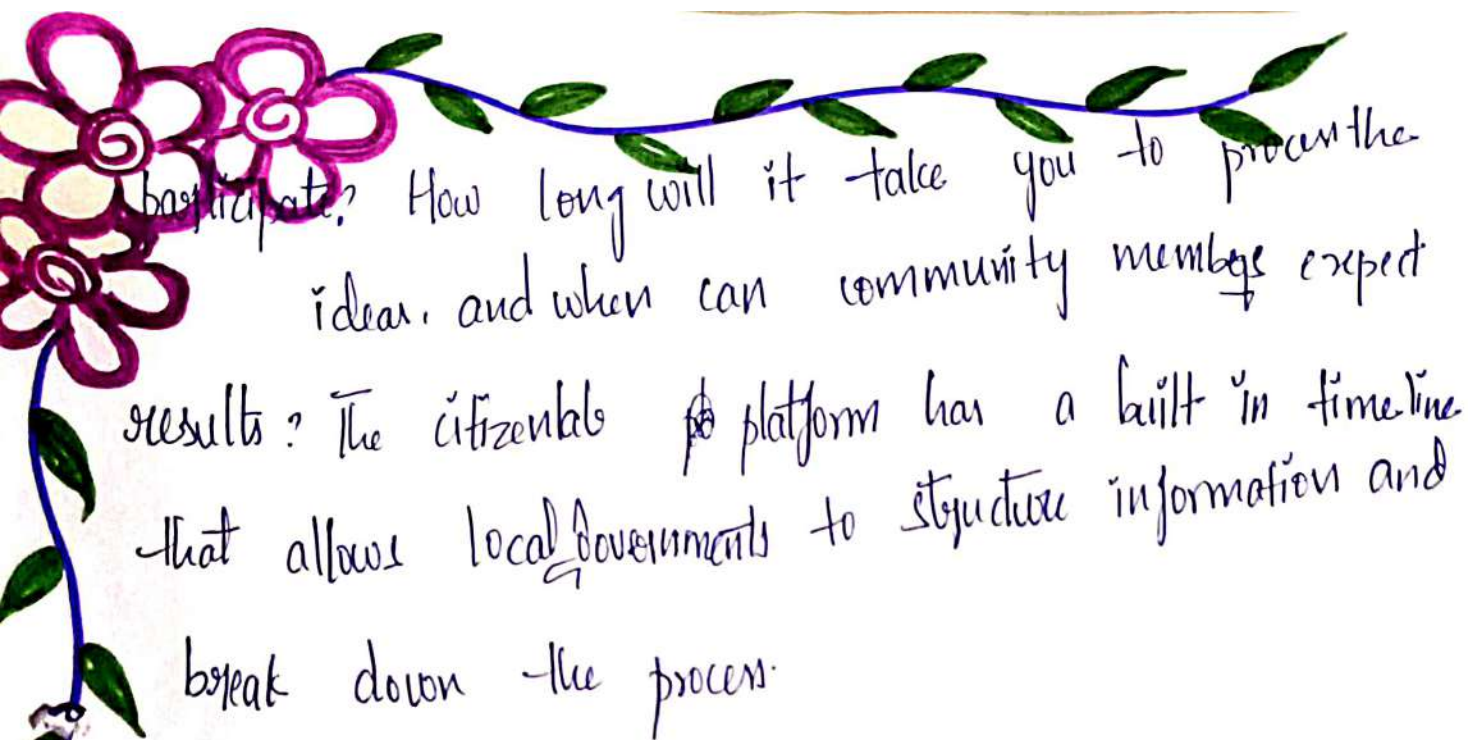 participate? How long will it take you to process the
ideas. and when can community members expect
results? The citizenlab platform has a built in timeline
that allows local governments to structure information and
break down the process.